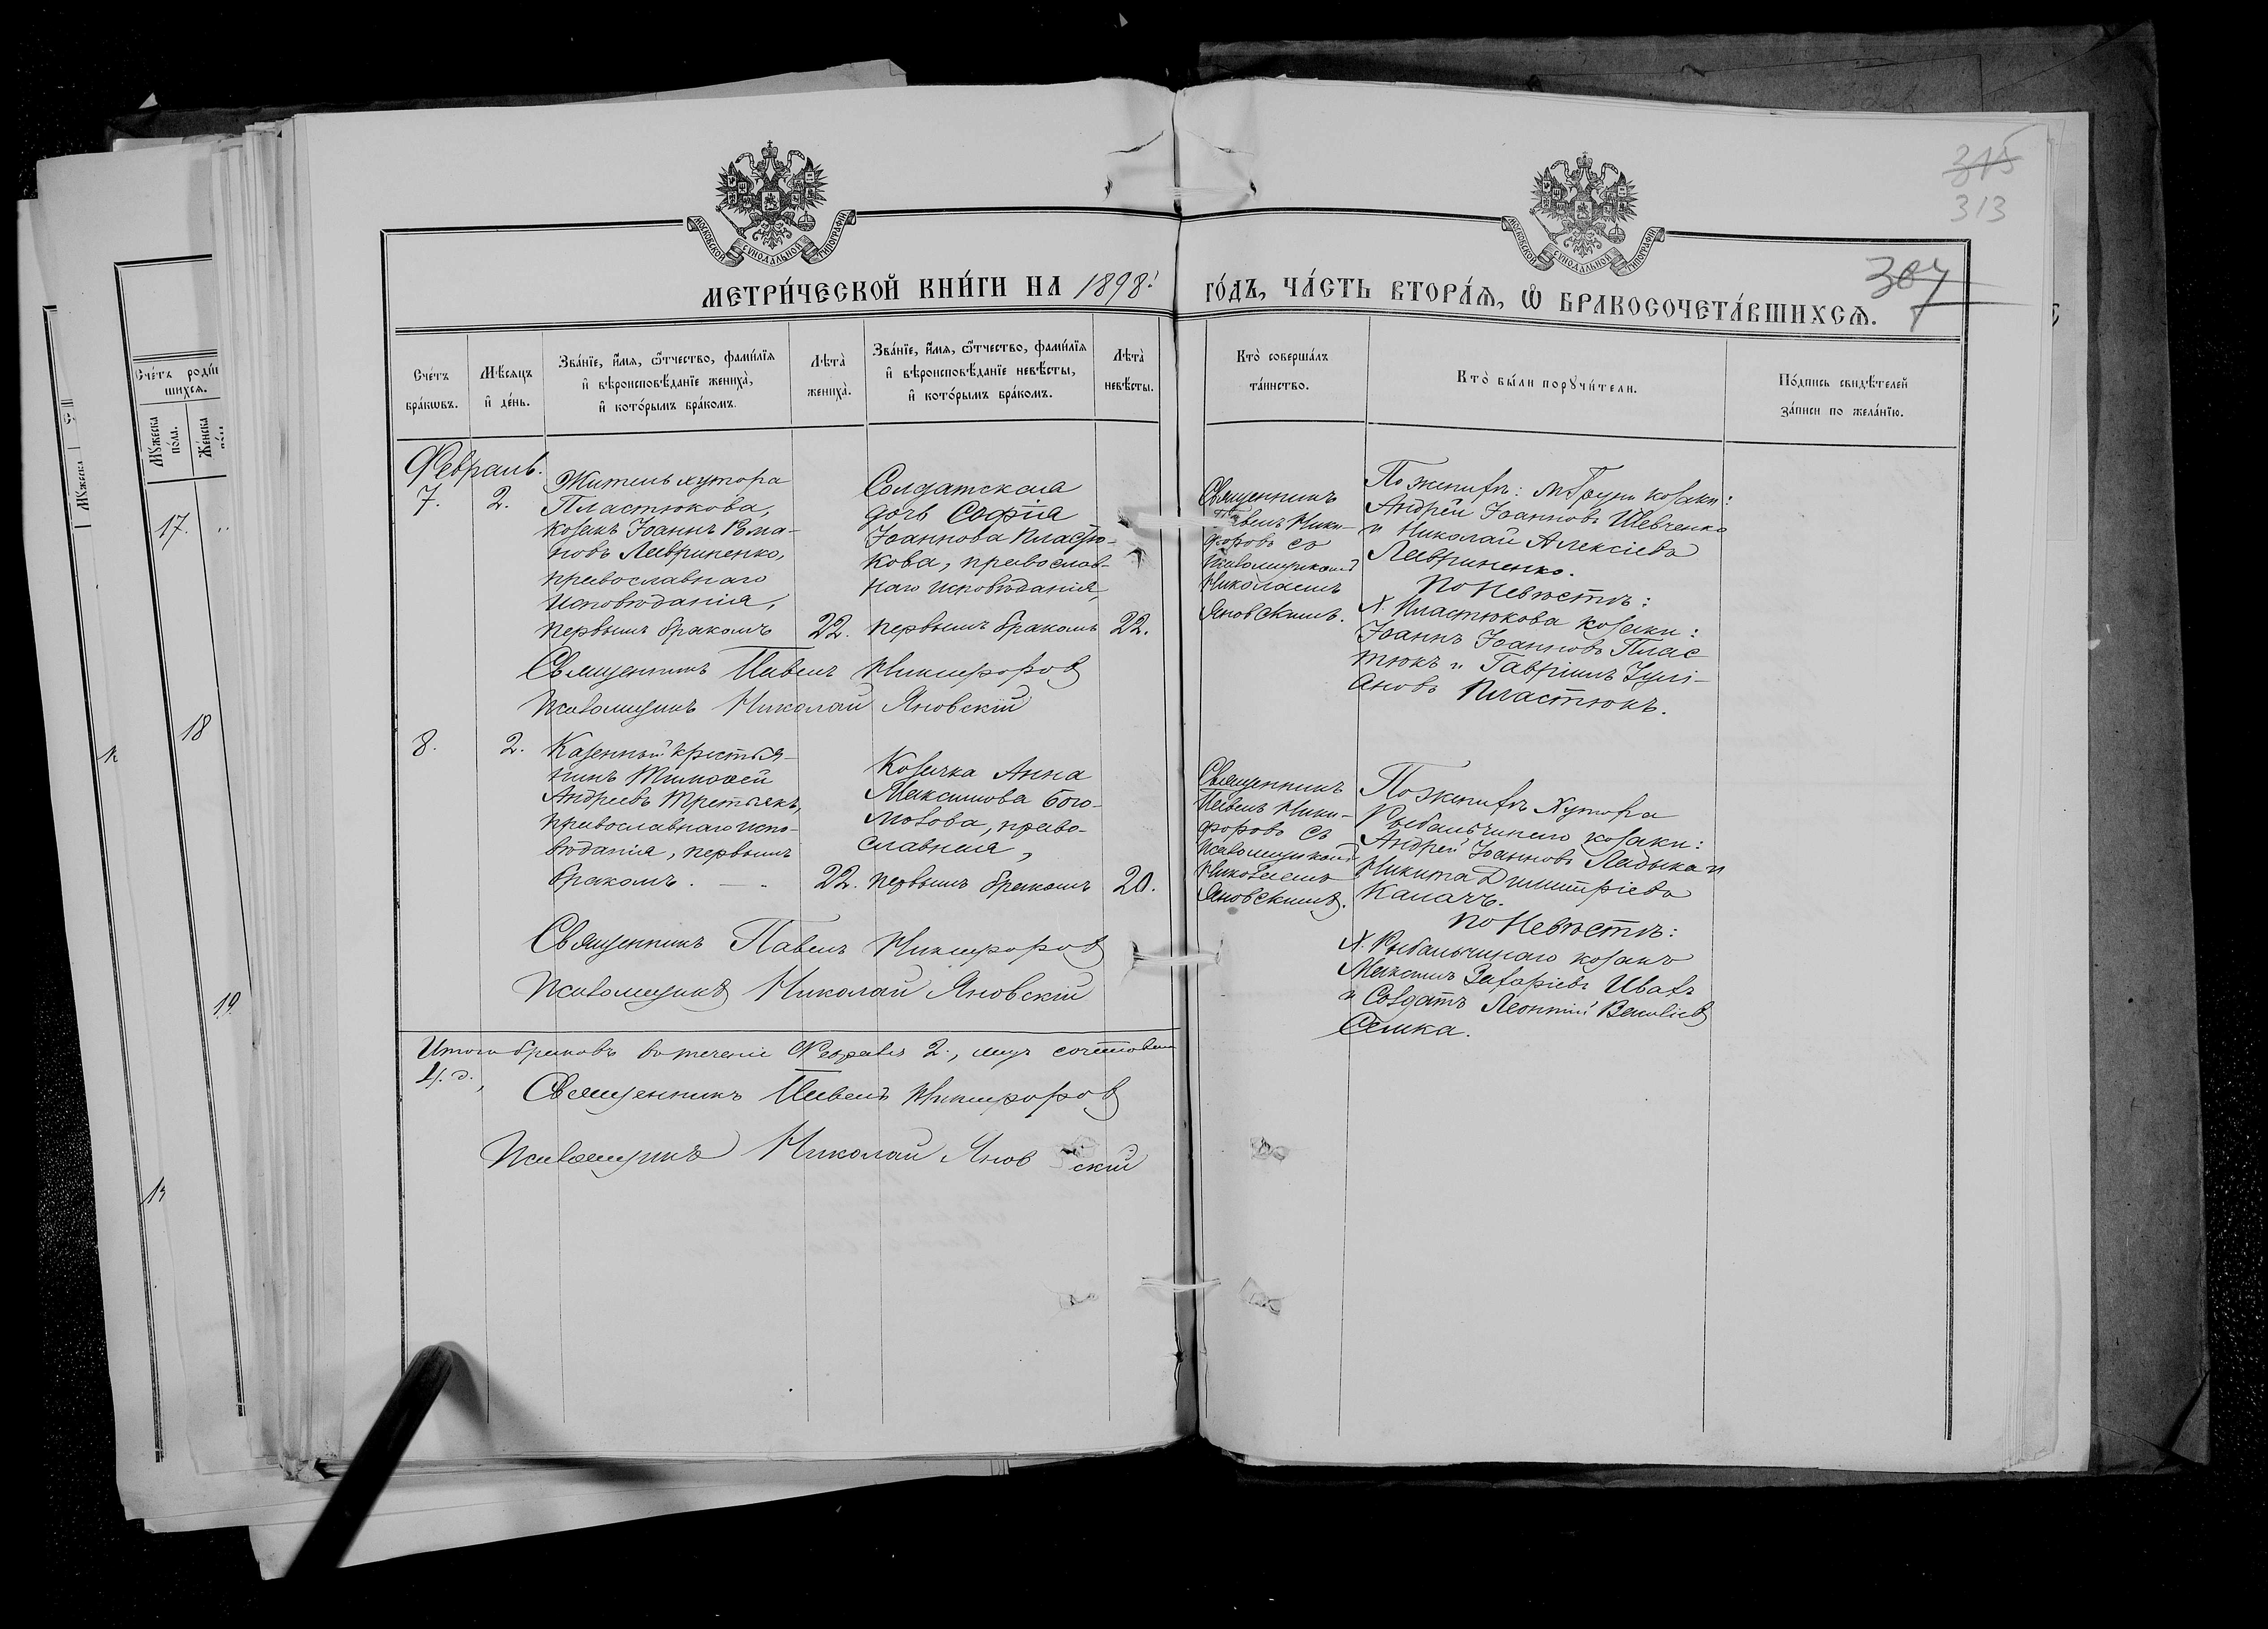 315
313
307
МОСКОВСКОЙ СѴНОДАЛЬНОЙ ТИПОГРАФІИ
МОСКОВСКОЙ СѴНОДАЛЬНОЙ ТИПОГРАФІИ
МЕТРИ́ЧЕСКОЙ КНИ́ГИ НА 1898
ГО́ДЪ, ЧА́СТЬ ВТОРА́Ѧ, Ѽ БРАКОСОЧЕТА́ВШИХСѦ.
Сче́тъ бра́кѡвъ.
Мѣ́сяцъ и҆ де́нь.
Зва́нїе, и҆́мя, ѻ҆́тчество, фами́лїя и҆ вѣроисповѣ́данїе жениха̀, и҆ кото́рымъ бра́комъ.
Лѣта̀ жениха̀.
Зва́нїе, и҆́мя, ѻ҆́тчество, фами́лїя и҆ вѣроисповѣ́данїе невѣ́сты, и҆ кото́рымъ бра́комъ.
Лѣта̀ невѣ́сты.
Кто̀ соверша́лъ та́инство.
Кто̀ бы́ли порꙋчи́тели.
По́дпись свидѣ́телей за́писи по жела́нїю.
Сче́тъ роди́в
шихся.
Мꙋ́жеска по́ла.
Же́нска
17.
18
19
Февраль.
7.
2.
Житель хутора
Пластюкова,
козакъ Іоаннъ Рома-
новъ Лавриненко,
православнаго
исповѣданія,
первымъ бракомъ
22.
Солдатская
дочь Софія
Іоаннова Пластю-
кова, православ-
наго исповѣданія,
первымъ бракомъ
22.
Священникъ
Павелъ Ники-
форовъ съ
псаломщикомъ
Николаемъ
Яновскимъ.
По женихѣ: м. Груни козаки:
Андрей Іоанновъ Шевченко
и Николай Алексіевъ
Лавриненко.
По невѣстѣ:
Х. Пластюкова козаки:
Іоаннъ Іоанновъ Плас
тюкъ и Гавріилъ Іулі-
ановъ Пластюкъ.
Священникъ Павелъ Никифоровъ
Псаломщикъ Николай Яновскій
8.
2.
Казенный крестья-
нинъ Тимоѳей
Андреевъ Третьякъ,
православнаго испо-
вѣданія, первымъ
бракомъ.
22.
Козачка Анна
Максимова Бого-
молова, право-
славная,
первымъ бракомъ
20.
Священникъ
Павелъ Ники-
форовъ съ
псаломщикомъ
Николаемъ
Яновскимъ.
По женихѣ хутора
Рыбальчинаго козаки:
Андрей Іоанновъ Ладыка и
Никита Димитріевъ
Каначъ.
По невѣстѣ:
Х. Рыбальчинаго козакъ
Максимъ Захаріевъ Ивахъ
и солдатъ Леонтій Василіевъ
Семка.
Священникъ Павелъ Никифоровъ
Псаломщикъ Николай Яновскій
Итого браковъ въ теченіе Февраля 2.,
Священникъ Павелъ Никифоровъ
Псаломщикъ Николай Яновскій